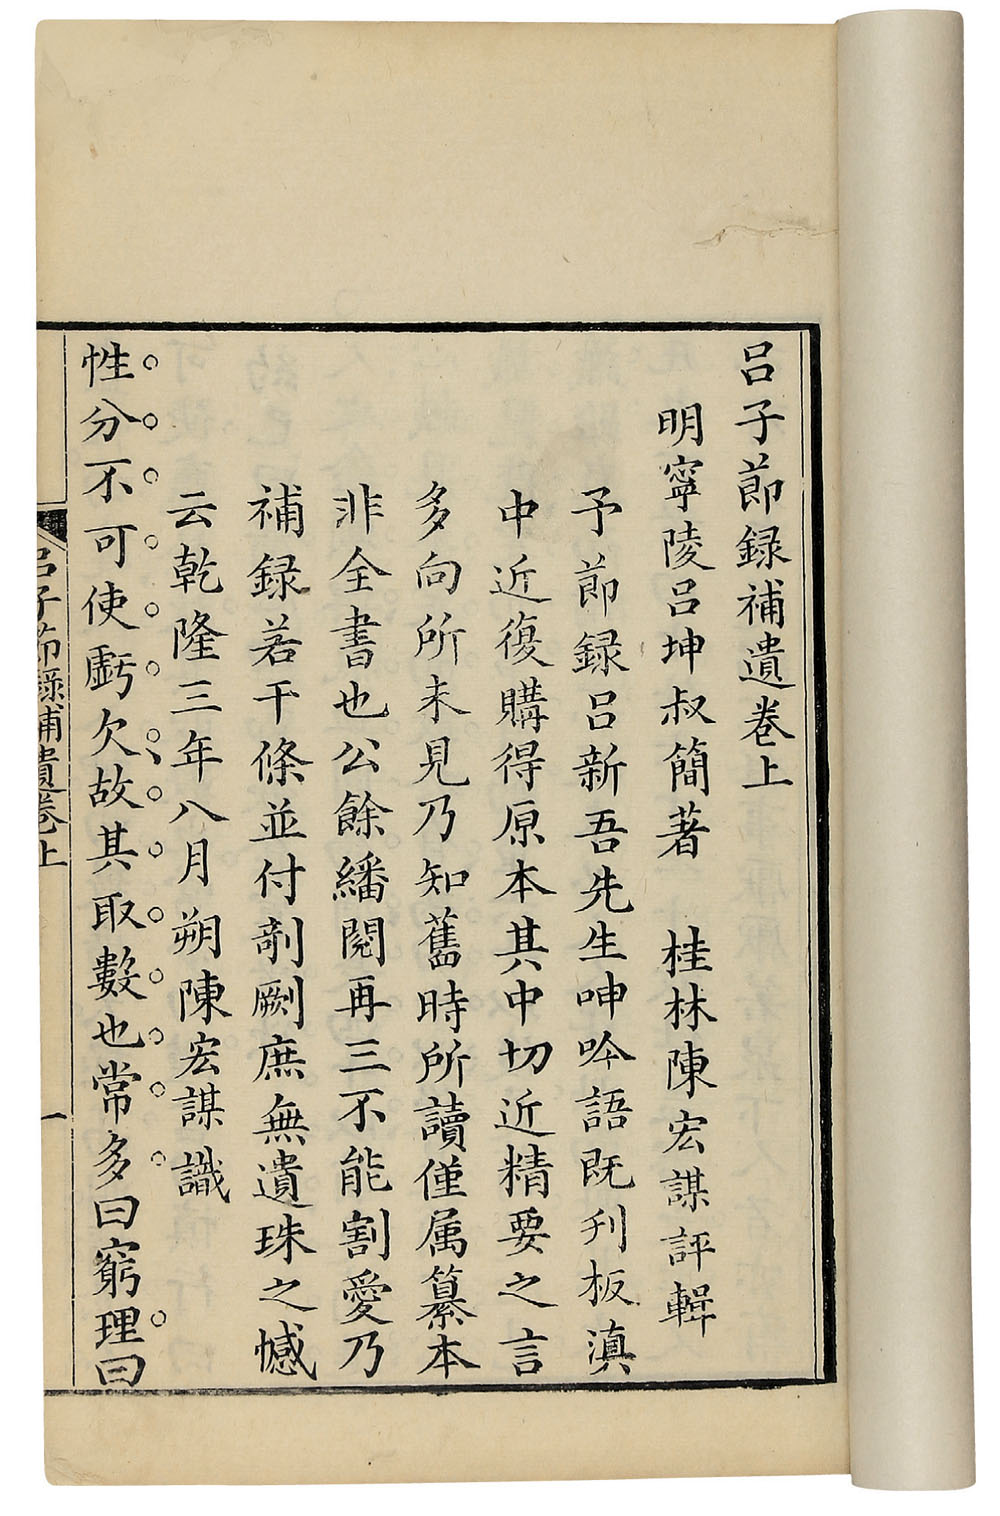 吕子節録補遺卷上
明寧陵吕坤叔簡著　桂林陳宏謀評輯
予節録吕新吾先生呻吟語既刋板滇
中近復購得原本其中切近精要之言
多向所未見乃知舊時所讀僅属纂本
非全書也公餘繙閲再三不能割愛乃
補録若干條並付剞劂庶無遺珠之憾
云乾隆三年八月朔陳宏謀識
性分不可使虧欠故其取數也常多曰窮理曰
吕子節録補遺卷上
一